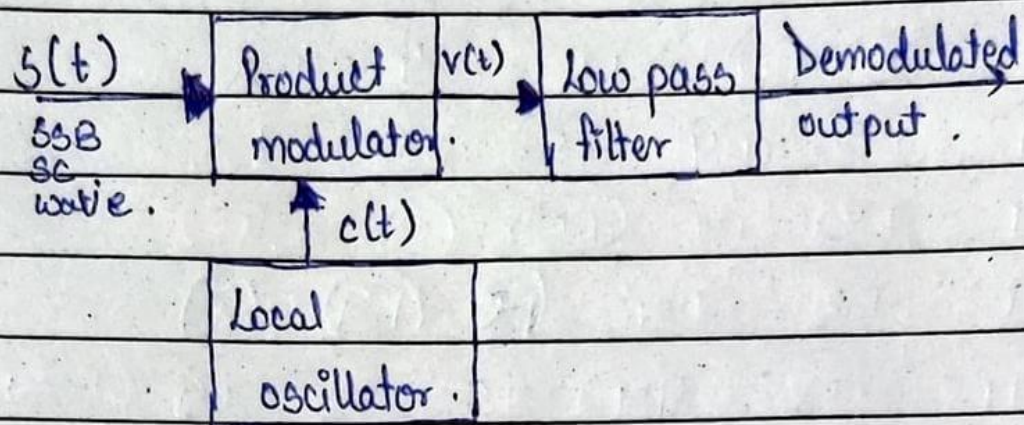 S(t)
SSB
SC
wave.
Product
modulator.
v(t)
Low pass
filter
Demodulated
output.
c(t)
Local
oscillator.